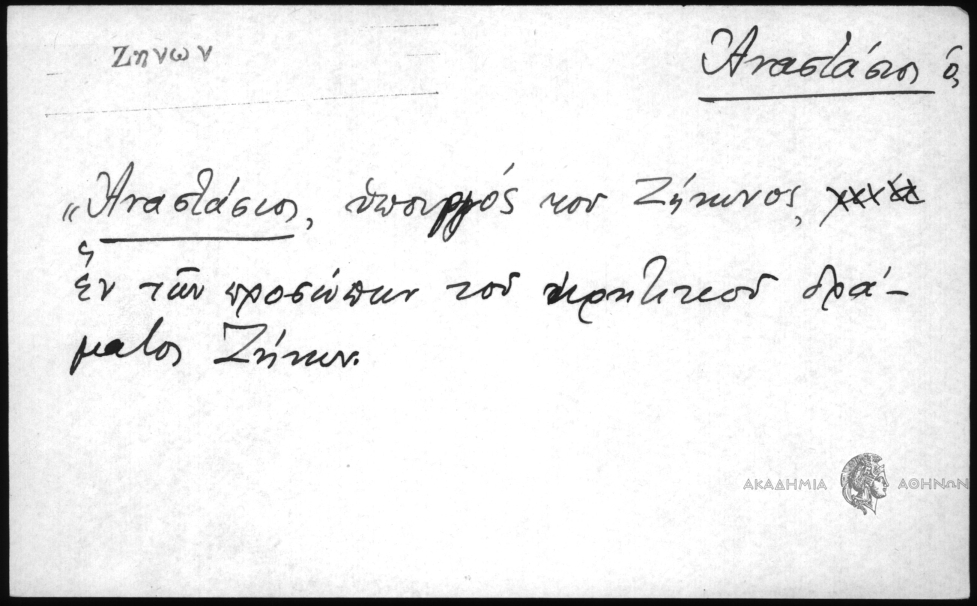 Ζηνων
Ἀναστάσιος ὁ
"Ἀναστάσιος, ὑπουργός του Ζήνωνος,
ἓν τῶν προσώπων τοῦ κρητικοῦ δρά-
ματος Ζήνων.
ΑΚΑΔΗΜΙΑ ΑΘΗΝΩΝ